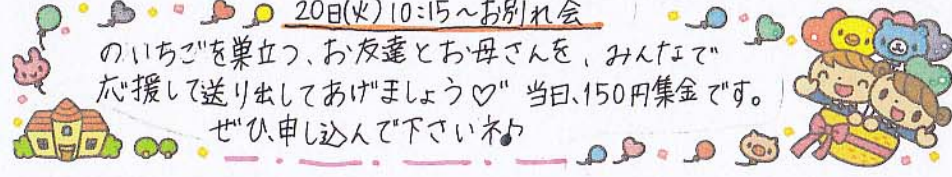 20日(火) 10:15～お別れ会
のいちごを巣立つ、お友達とお母さんを、みんなで
応援して送り出してあげましょう♡" 当日、150円集金です。
ぜひ、申し込んで下さいネ♪